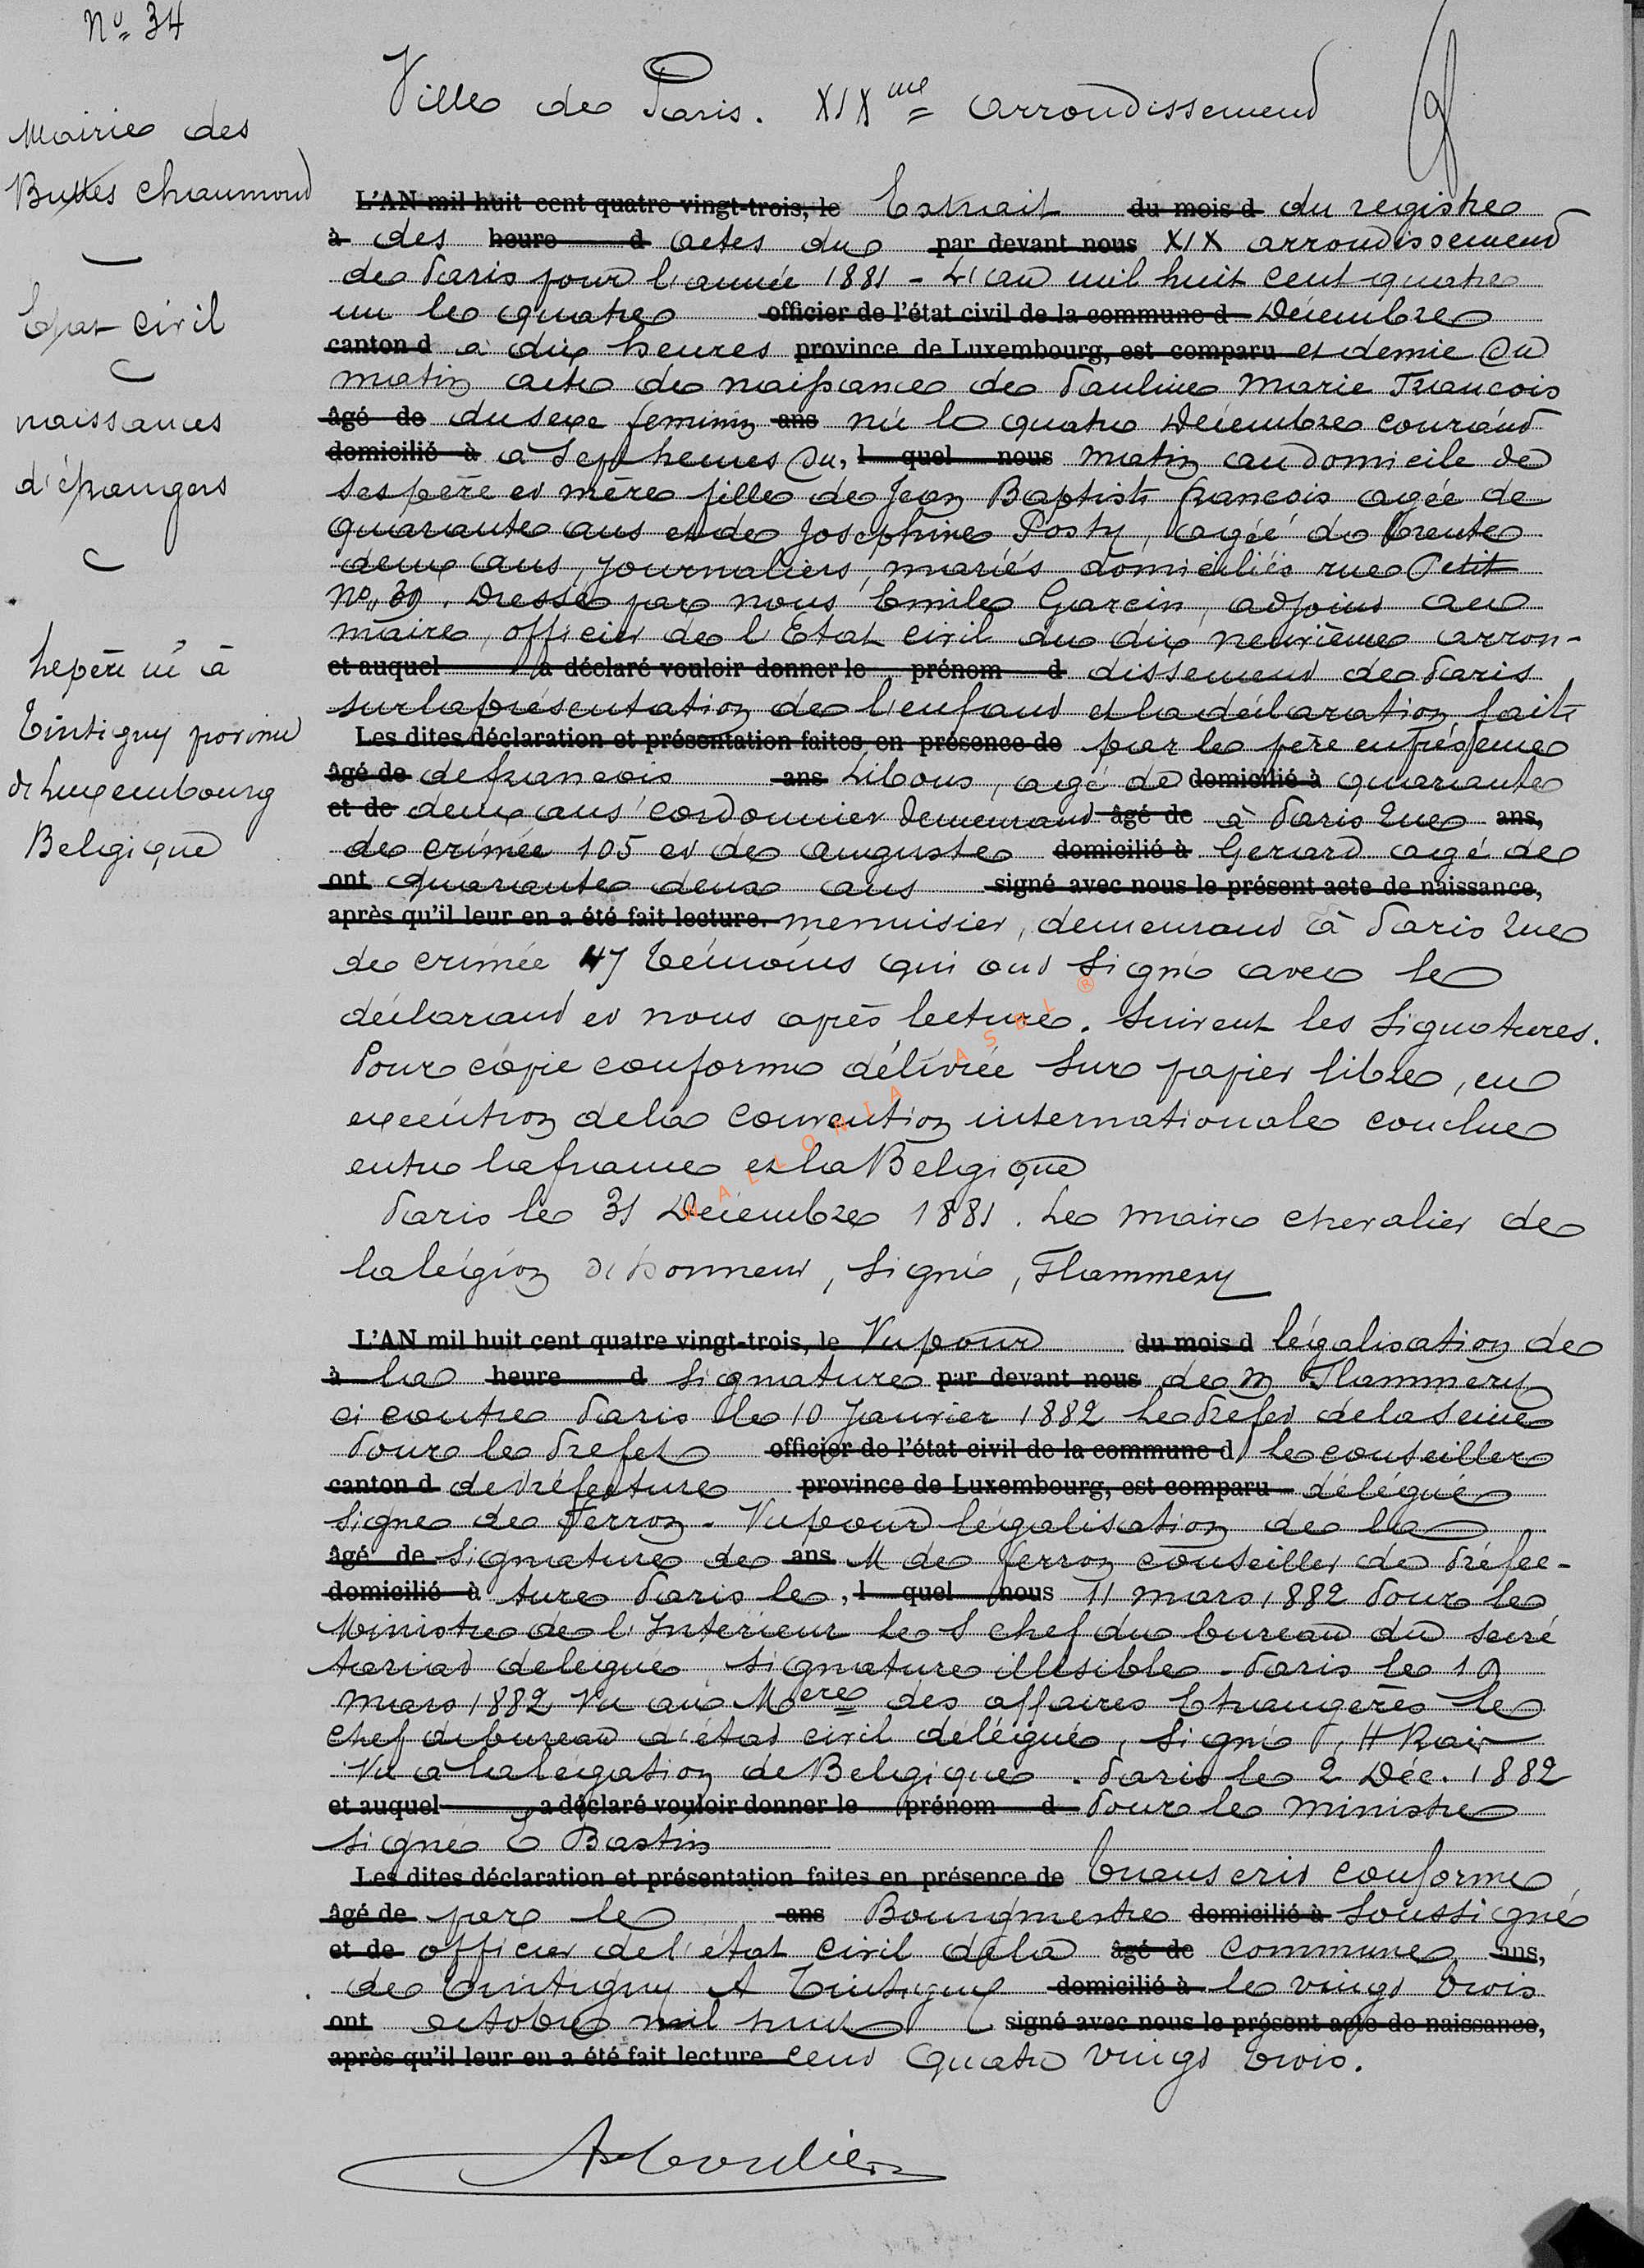 Nº 34
Ville de Paris. XIXme arrondissement
Mairie des
Buttes chaumont
Etat civil
naissances
d'étrangers
Le père né à
Tintigny province
de Luxembourg
Belgique
L'AN mil huit cent quatre vingt-trois, le Extrait du mois d du registre
à des heure d actes du par devant nous XIX arrondissement
de Paris pour l'année 1881 - L'an mil huit cent quatre
un le quatre officier de l'état civil de la commune d Décembre
canton d à dix heures province de Luxembourg, est comparu et demie du
matin acte de naissance de Pauline Marie Francois
âgé de du sexe feminin ans né le quatre Décembre courant
domicilié à a Sept heures du, l quel nous matin au domicile de
ses père et mère fille de Jean Baptiste francois agée de
quarante ans et de Josephine Posty, agée de trente
deux ans, journaliers, mariés domiciliés rue Petit
No, 39. Dressé par nous Emile Garcin, adjoint au
maire, officier de l'Etat civil du dix neuvième arron-
et auquel a déclaré vouloir donner le prénom d dissement de Paris
sur la présentation de l'enfant et la déclaration faite
Les dites déclaration et présentation faites en présence de par le père en présence
âgé de de francois ans Libous, agé de domicilié à quarante
et de deux ans cordonnier demeurant âgé de à Paris rue ans,
de crimée 105 et de auguste domicilié à Gerard agé de
ont quarante deux ans signé avec nous le présent acte de naissance,
après qu'il leur en a été fait lecture. menuisier, demeurant à Paris rue
de crimée 47 témoins qui ont signé avec le
déclarant et nous après lecture. Suivent les Signatures.
Pour copie conforme délivrée sur papier libre, en
execution de la convention internationale conclue
entre la france et la Belgique
Paris le 31 Décembre 1881. Le maire chevalier de
la légion d'honneur, Signé, Flammery
WALLONIA ASBL ®
L'AN mil huit cent quatre vingt-trois, le Vu pour du mois d légalisation de
à la heure d signature par devant nous de M Flammery
ci contre Paris le 10 Janvier 1882 Le Préfet de la Seine
Pour le Prefet officier de l'état civil de la commune d le conseiller
canton d de Préfecture province de Luxembourg, est comparu délégué
Signé de Ferron - Vu pour légalisation de la
âgé de Signature de ans M de Ferron conseiller de Préfec-
domicilié à ture Paris le, l quel nous 11 mars 1882 Pour le
Ministre de l'Intérieur le S chef du bureau du secré
tariat delégué Signature illisible - Paris le 19
mars 1882 Vu au Mere des affaires Etrangères le
chef du bureau d'état civil délégué, Signé, H Rair
Vu a la légation de Belgique. Paris le 2 Déc. 1882
et auquel a déclaré vouloir donner le prénom d Pour le ministre
Signé E Bastin
Les dites déclaration et présentation faites en présence de Transcrit conforme
âgé de par le ans Bourgmestre domicilié à soussigné
et de officier de l'état civil de la âgé de commune ans,
de Tintigny A Tintigny domicilié à le vingt trois
ont octobre mil huit signé avec nous le présent acte de naissance,
après qu'il leur en a été fait lecture cent quatre vingt trois.